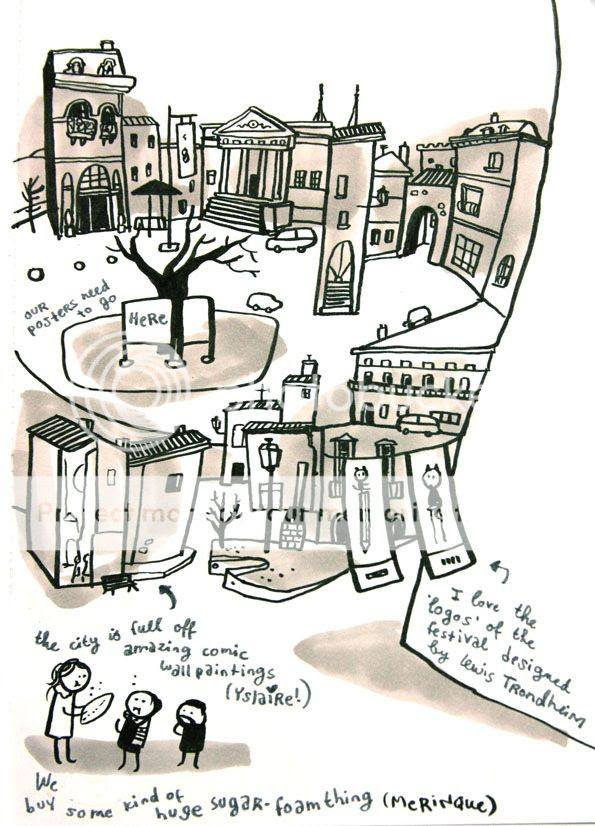 our
posters need
to go
HeRe
I love the
'logos' of the
festival designed
by Lewis Trondheim
the city is full off
amazing comic
wallpaintings
(Yslaire!)
We
buy some kind of
huge sugar-foamthing (MeRiNque)